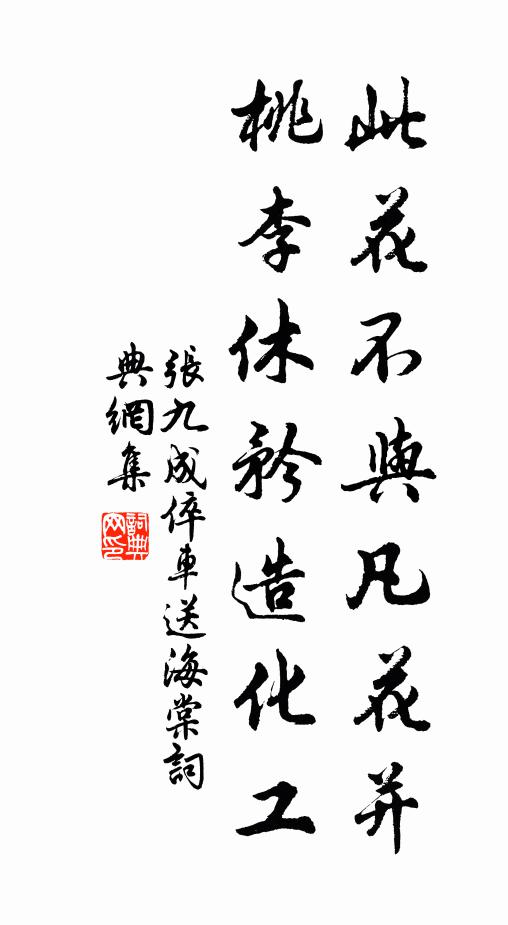 此花不與凡花并
桃李休矜造化工
張九成倅車送海棠詞
典網集
詞典
网印